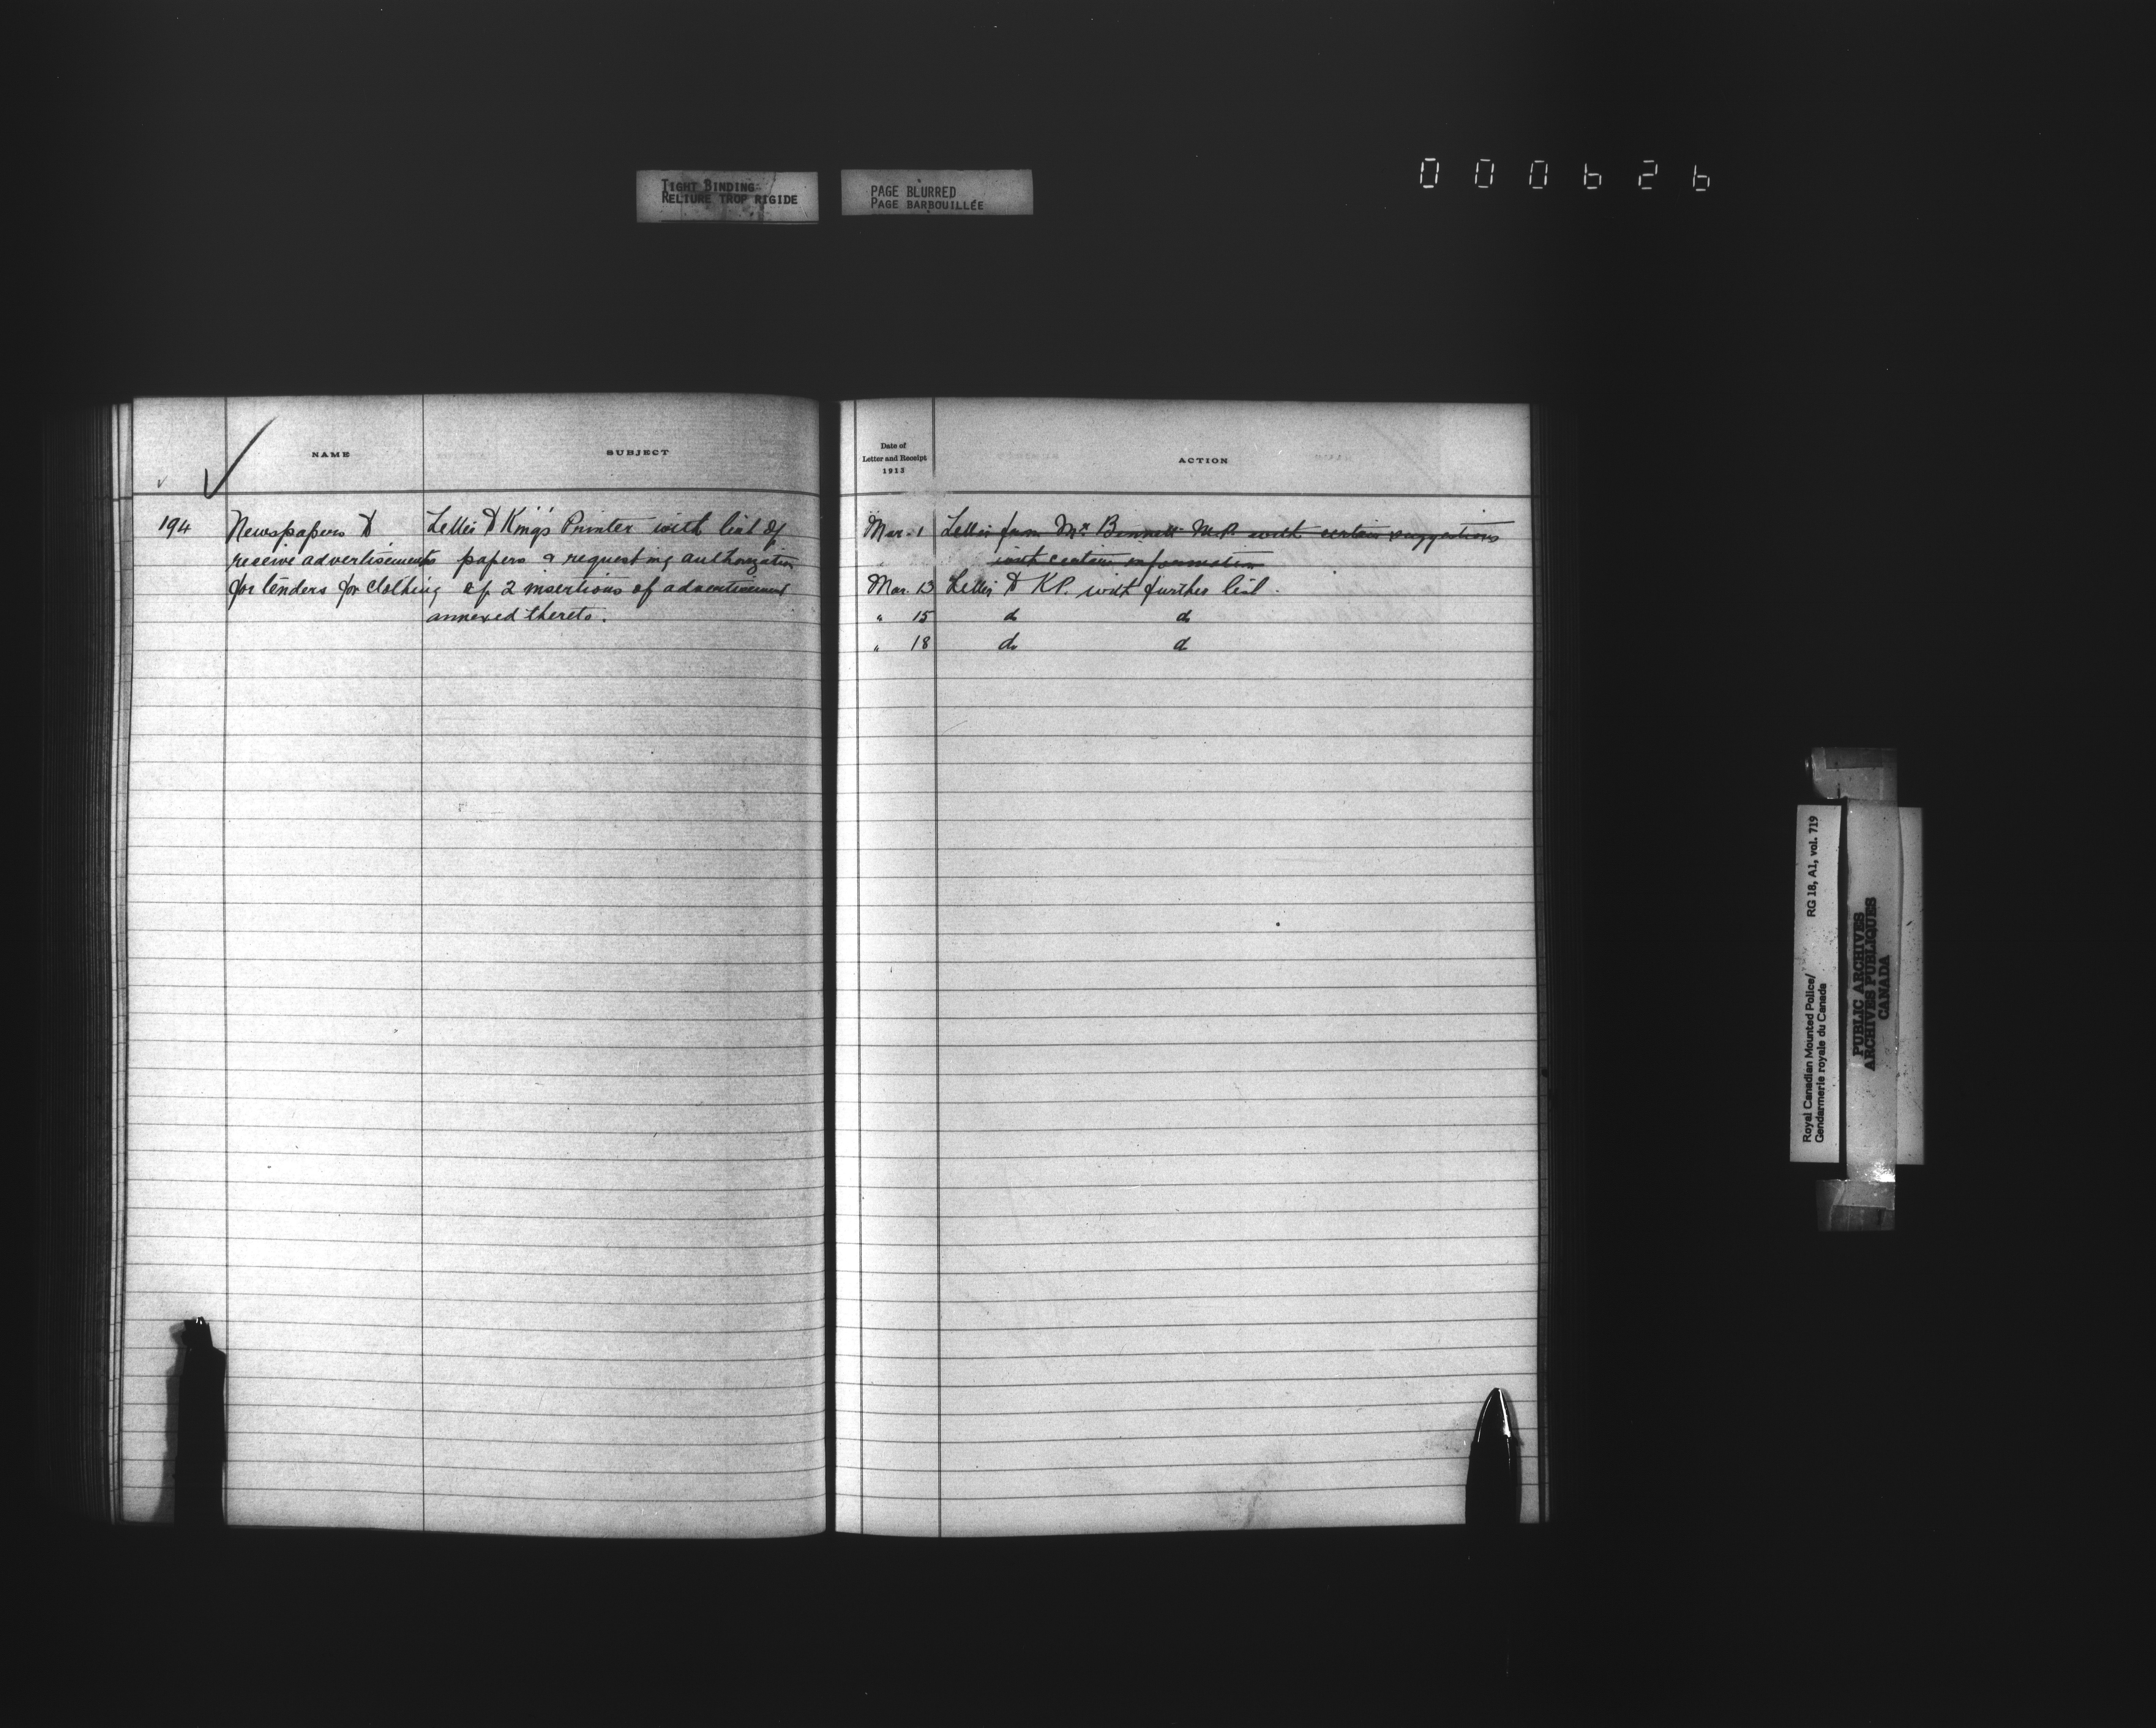 TIGHT BINDING
RELIURE TROP RIGIDE
PAGE BLURRED
PAGE BARBOUILLÉE
000626
NAME
SUBJECT
194
Newspapers to
receive advertisements
for tenders for clothing
Letter to King's Printer with list of
papers & requesting authorization
of 2 insertions of advertisement
annexed thereto.
Date of
Letter and Receipt
1913
ACTION
Mar. 1 Letter from Mr Bennett M.P. with certain suggestions
with certain information
Mar. 13 Letter to KP. with further list.
" 15 do do
" 18 do do
Royal Canadian Mounted Police/
Gendarmerie royale du Canada
RG 18, A1, vol. 719
PUBLIC ARCHIVES
ARCHIVES PUBLIQUES
CANADA